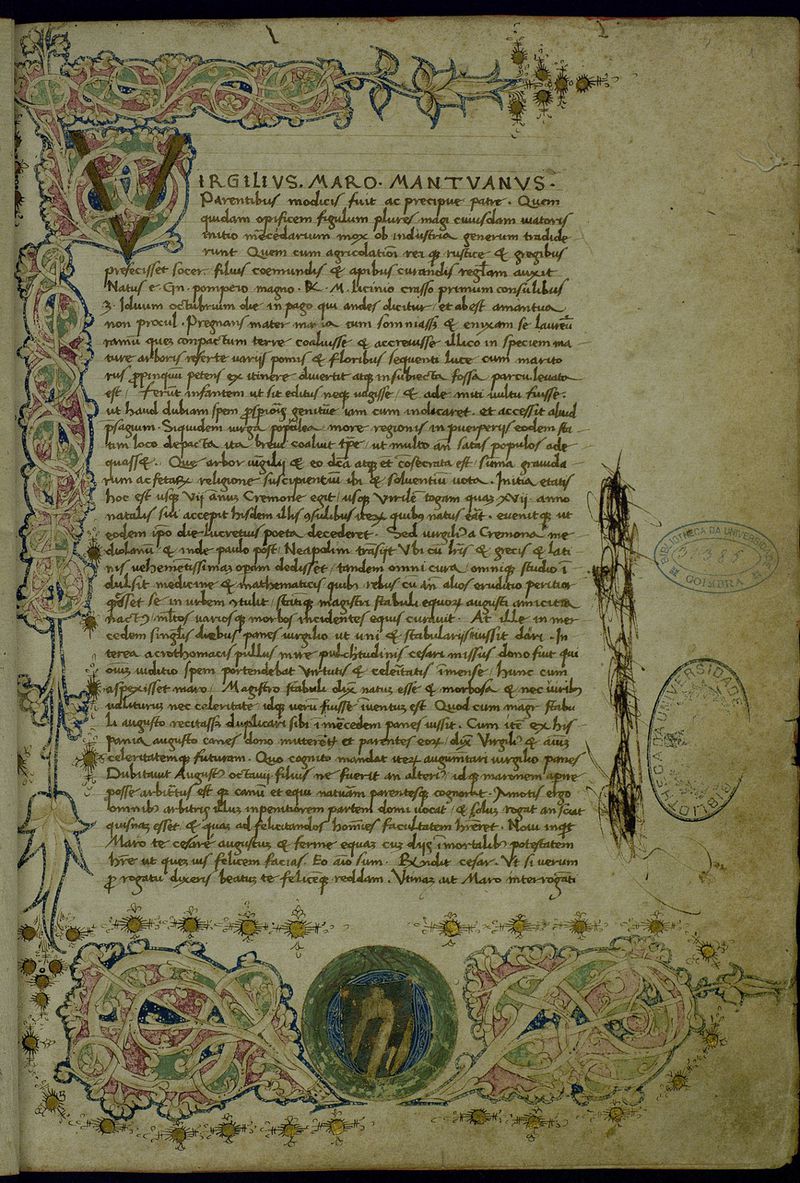 VIRGILIVS. MARO. MANTVANVS.
Parentibus modicis fuit ac precipue patre. Quem
quidam opificem figulum plures magi cuiusdam uiatoris
initio mercedarium mox ob industria generum tradide
runt Quem cum agricolation rei qȝ rustice & gregibus
prefecisset socer. filius coemundis & apibus curandis reglam auxit
Natus e. Gn. pompeio magno. & M. licinio crasso primum consulibus
iduum octubrium die in pago qui andes dicitur et abest amantua
non procul. Pregnans mater maia cum somniass & enixam se laureū
ramū quez conpactum terre coaluisse & accreuisse illico in speciem ma
ture arboris referte varijs pomis & floribus sequenti luce cum marito
rus propinquū petens ex itinere diuertit atqȝ in subiecta fossa partu leuata
est / Ferūt infantem ut sit editus neqȝ uagisse / & adeo miti uultu fuisse.
ut haud dubiam spem genitūe iam cum indicaret. et accessit aliud
psagium. Siquidem uirga populea more regionis in puerperijs eodem sta
tim loco depacta ita breui coaluit tpe / ut multo an satas populos ade
quass&. Que arbor uirgilij & eo dcā atqȝ et cosecrata est / suma grauida
rum ac fetarȝ religione suscipientiū ibi & soluentiū uota. Initia etatis
hoc est usqȝ Vij annū Cremone egit / usqȝ Virilē togam quaȝ XVij anno
natalis sui accepit hisdem illis cōsulibus iteȝ quibȝ natus eāt. euenitqȝ ut
eodem ipo die lucretius poeta decederet. Sed uirgili a Cremona me
diolanū & inde paulo post Neapolim trasijt Vbi cū lris & grecis & lati
nis uehemetissimaȝ opam dedisset / tandem omni cura omniqȝ studio i
dulsit medicine & mathematicis quibȝ rebus cū an alios eruditio peritior
se in urbem ctulit / statiqȝ magistri stabuli equoȝ augusti amicitia
nact / mltos uariosqȝ morbos incidentes equis curauit. At ille in mer
cedem singlis diebus panes uirgilio ut uni & stabularijs iussit dari. In
terea acrothomacis pullus mire pulchtudinis cesari missus dono fuit qui
oiuȝ iuditio spem portendebat Virtutis & celeitatis imense / hunc cum
aspexisset maro / Magistro stabuli dix natus esse & morbosa & nec uiribȝ
ualiturus nec celeritate idqȝ ueru fuisse iuentus est Quod cum magr stabu
li augusto recitass duplicari sibi i mcedem panes iussit. Cum ite ex his
pania augusto canes dono mitterēt et parentes eorȝ dix Virgili & aiuȝ
celeritatemqȝ futuram. Quo cognito mandat iteȝ augmitari uirgilio panes
Dubitauit August octauij filius ne fuerit an alteri idqȝ maronem apire
posse arbitratus est qȝ canū et equi naturam parentesqȝ cognorat. Amotis ergo
omnibȝ arbitris illuȝ inpenitiorem partem domi uocat / & solus rogat an sciat
quisnaȝ esset & quaȝ ad felicitandos homies facultatem hreret. Noui inqt
Maro te cesare augustuȝ & ferme equaȝ cuȝ dijs imortalibȝ potestatem
hre ut queȝ uis felicem facias. Eo aio sum. Rñdit cesar. Vt si uerum
p rogatu dixeris beatuȝ te felicēqȝ reddam. Vtinaȝ ait Maro interrogāti
BIBLIOTHECA DA UNIVERSIDADE
31385
COIMBRA
BIBLIOTHECA DA UNIVERSIDADE